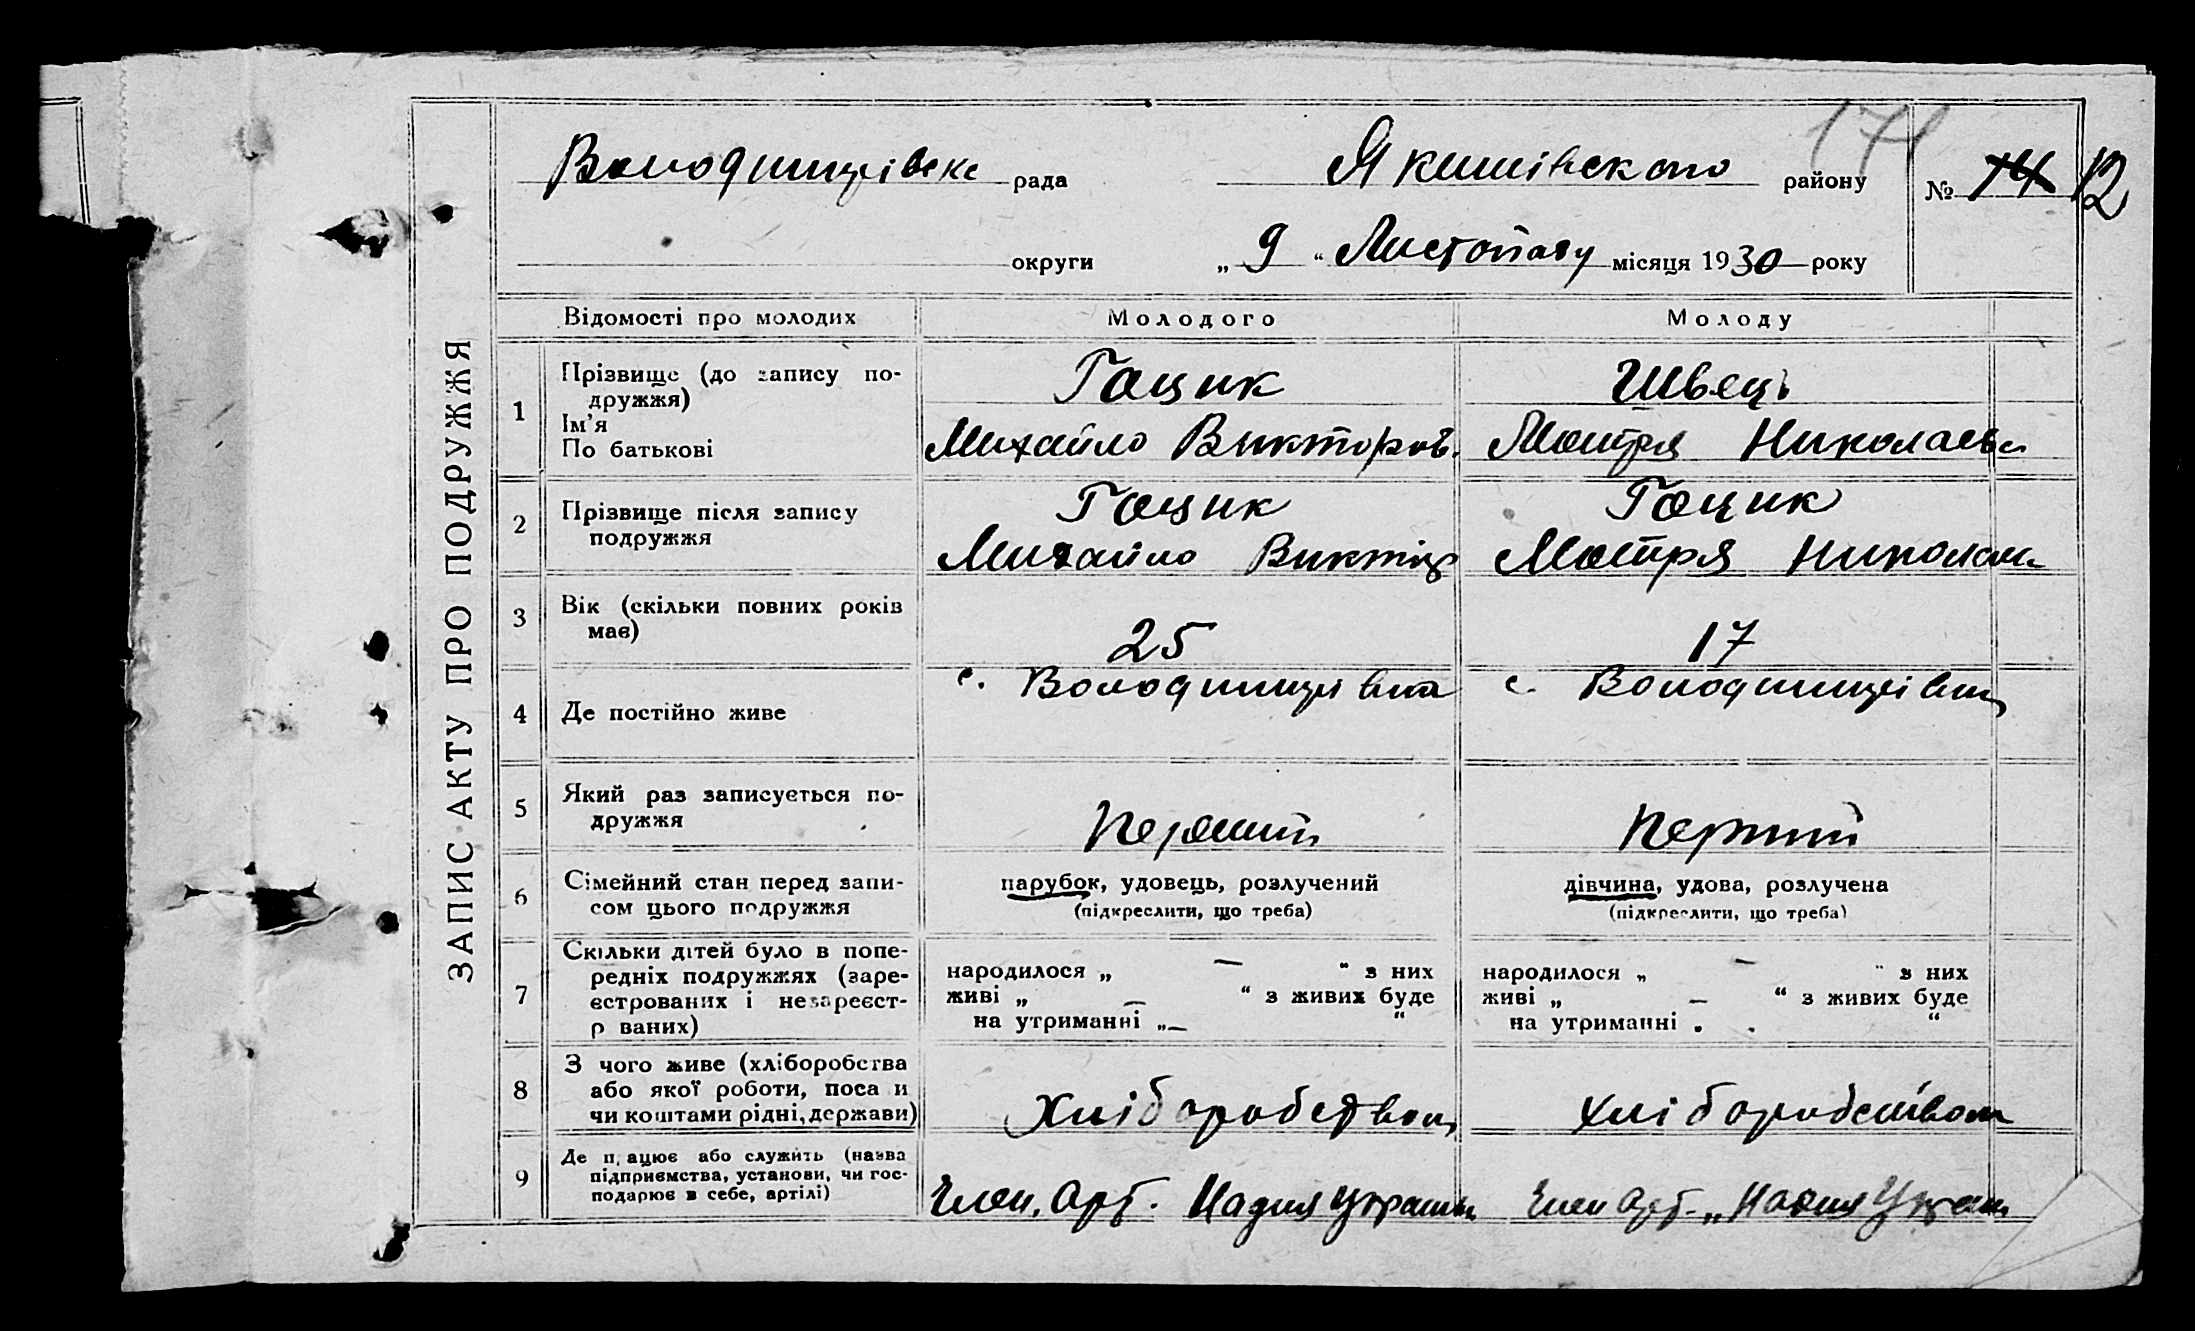 ЗАПИС АКТУ ПРО ПОДРУЖЖЯ
171
Володимирівська рада Якимівского району № 14 12
округи „ 9 “ Листопаду місяця 1930 року
Відомості про молодих Молодого Молоду
1 Прізвище (до запису по-
дружжя) Гацик Швець
Ім’я
По батькові Михайло Викторов. Мотря Николаевн
2 Прізвище після запису Гацик Гацик
подружжя Михайло Виктор Мотря Николаев
3 Вік (скільки повних років
має) 25 17
4 Де постійно живе с. Володимирівка с. Володимирівка
5 Який раз записується по-
дружжя Перший Перший
6 Сімейний стан перед запи- парубок, удовець, розлучений дівчина, удова, розлучена
сом цього подружжя (підкреслити, що треба) (підкреслити, що треба)
7 Скільки дітей було в попе-
редніх подружжях (заре- народилося „ — “ з них народилося „ — “ з них
єстрованих і незареєст- живі „ — “ з живих буде живі „ — “ з живих буде
р ваних) на утриманні „— “ на утриманні . . “
8 З чого живе (хліборобства
або якої роботи, поса и
чи коштами рідні, держави) Хліборобством хліборобством
9 Де п ацює або служить (назва
підприємства, установи, чи гос-
подарює в себе, артілі) Член. Арт. Надия Украины Член Арт. „Надия Украин